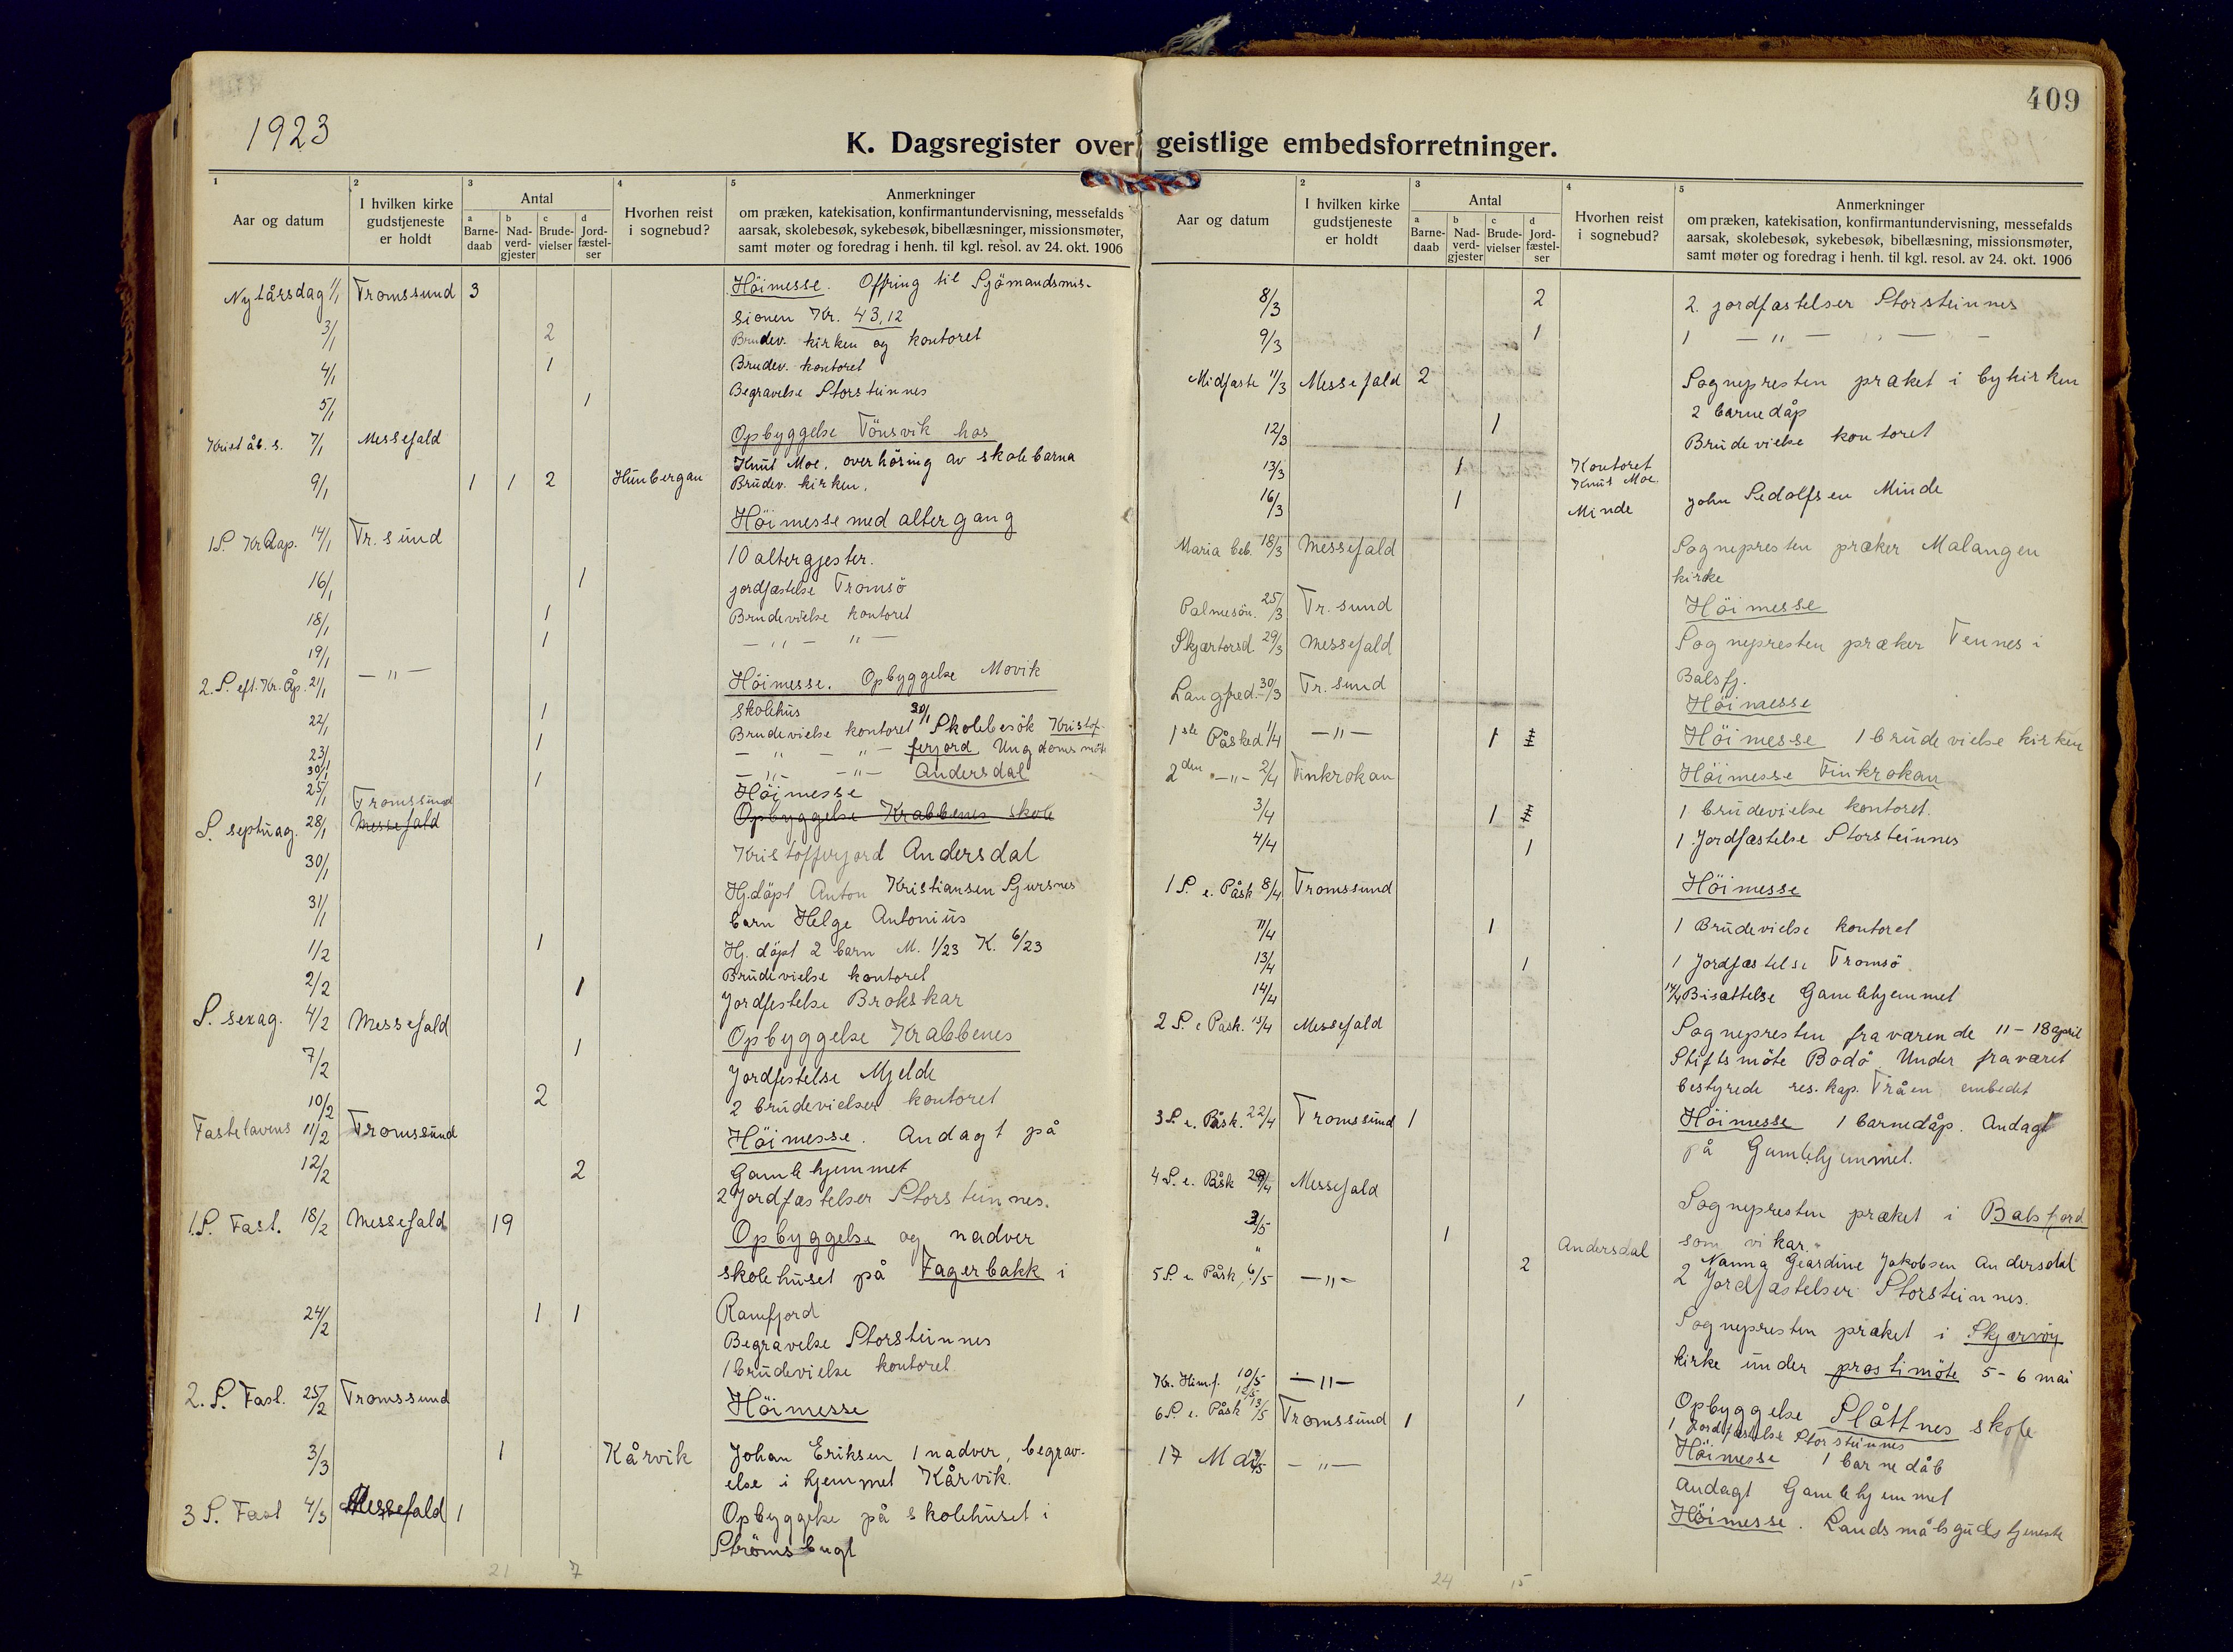 1923
409
K. Dagsregister over geistlige embedsforretninger.
1 2 3 4 5
Aar og datum
I hvilken kirke gudstjeneste er holdt
Antal
a Barne-daab
b Nad-verd-gjester
c Brude-vielser
d Jord-fæstel-ser
Hvorhen reist i sognebud?
Anmerkninger
om præken, katekisation, konfirmantundervisning, messefalds
aarsak, skolebesøk, sykebesøk, bibellæsninger, missionsmøter,
samt møter og foredrag i henh. til kgl. resol. av 24. okt. 1906
Nytårsdag 1/1 Tromssund 3 Höimesse. Offring til Sjömandsmis-
sionen Kr. 43,12
3/1 2 Brudev. kirken og kontoret
4/1 1 Brudev. kontoret
5/1 1 Begravelse Storsteinnes
Krist åb. s. 7/1 Messefald Opbyggelse Tönsvik hos
Knut Moe, overhöring av skolebarna
9/1 1 1 2 Hunbergan Brudev. kirken.
1S. Kr Aap. 14/1 Tr. sund Höimesse med altergang
10 altergjester.
16/1 1 jordfæstelse Tromsö
18/1 1 Brudevielse kontoret
19/1 1 — " — " —
2. S. eft. Kr. Åp. 21/1 — " — Höimesse. Opbyggelse Movik
skolehus
22/1 1 Brudevielse kontoret 30/1 Skolebesök Kristof-
23/1 1 — " — " — ferjord, Ungdomsmöte
30/1
25/1 1 — " — — " — Andersdal
Tromssund Höimesse
S. septuag. 28/1 Messefald Opbyggelse Krabbenes skole
30/1 Kristofferjord Andersdal
31/1 Hj.döpt Anton Kristiansen Sjursnes
barn Helge Antonius
1/2 1 Hj. döpt 2 barn M. 1/23 K. 6/23
Brudevielse kontoret
2/2 1 Jordfestelse Brokskar
S. sexag. 4/2 Messefald Opbyggelse Krabbenes
7/2 1 Jordfestelse Mjelde
10/2 2 2 brudevielser kontoret
Fastelavens 11/2 Tromssund Höimesse. Andagt på
Gamlehjemmet
12/2 2 2 Jordfæstelser Storsteinnes.
1.S. Fast. 18/2 Messefald 19 Opbyggelse og nadver
skolehuset på Fagerbakk i
Ramfjord
24/2 1 1 Begravelse Storsteinnes
1 brudevielse kontoret
2. S. Fast. 25/2 Tromssund Höimesse
3/3 1 Kårvik Johan Eriksen 1 nadver, begrav-
else i hjemmet Kårvik.
3 S. Fast 4/3 Messefald 1 Opbyggelse på skolehuset i
Strömsbugt
21 7
2 3 4 5
Aar og datum
I hvilken kirke gudstjeneste er holdt
Antal
a Barne-daab
b Nad-verd-gjester
c Brude-vielser
d Jord-fæstel-ser
Hvorhen reist i sognebud?
Anmerkninger
om præken, katekisation, konfirmantundervisning, messefalds
aarsak, skolebesøk, sykebesøk, bibellæsning, missionsmøter,
samt møter og foredrag i henh. til kgl. resol. av 24. okt. 1906
8/3 2 2. jordfæstelser Storsteinnes
9/3 1 1 — " — " —
Midfaste 11/3 Messefald 2 Sognepresten præket i bykirken
2 barnedåp
12/3 1 Brudevielse kontoret
13/3 1 Kontoret
Knut Moe.
16/3 1 Minde John Pedolfsen Minde
Maria beb. 18/3 Messefald Sognepresten præker Malangen
kirke
Palmesön. 25/3 Tr. sund Höimesse
Skjærtorsd. 29/3 Messefald Sognepresten præker Tennes i
Balsfj.
Langfred. 30/3 Tr. sund Höimesse
1ste Påsked 1/4 — " — 1 Höimesse 1 brudevielse kirken
2den — " — 2/4 Finkrokan Höimesse Finkrokan
3/4 1 1 brudevielse kontoret.
4/4 1 1 Jordfæstelse Storsteinnes
1 S. e. Påsk 8/4 Tromssund Höimesse
11/4 1 1 Brudevielse kontoret
13/4 1 1 Jordfæstelse Tromsö
14/4 14/4 Bisættelse Gamlehjemmet
2 S. e Påsk. 15/4 Messefald Sognepresten fraværende 11-18 april
Stiftsmöte Bodö. Under fraværet
bestyrede res. kap. Tråen embedet
3 S. e. Påsk. 22/4 Tromssund 1 Höimesse 1 barnedåp. Andagt
på Gamlehjemmet.
4 S. e. Påsk 29/4 Messefald Sognepresten præket i Balsfjord
som vikar.
3/5 1 Andersdal Nanna Geardine Jakobsen Andersdal
" 2 2 Jordfæstelser Storsteinnes.
5 S. e Påsk 6/5 — " — Sognepresten præket i Skjærvöy
kirke under prostimöte 5-6 mai
Kr. Him.f. 10/5 — " — Opbyggelse Slåttnes skole
12/5 1 1 Jordfæstelse Storsteinnes
6 S. e. Påsk 13/5 Tromssund 1 Höimesse 1 barnedåb
Andagt Gamlehjemmet
17 Mai — " — Höimesse. Landsmålsgudstjeneste
24 15